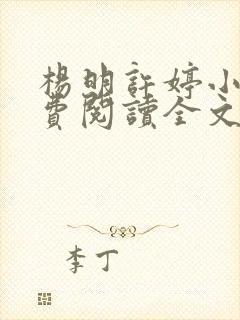 楊明許婷小
費閱讀全文
李丁